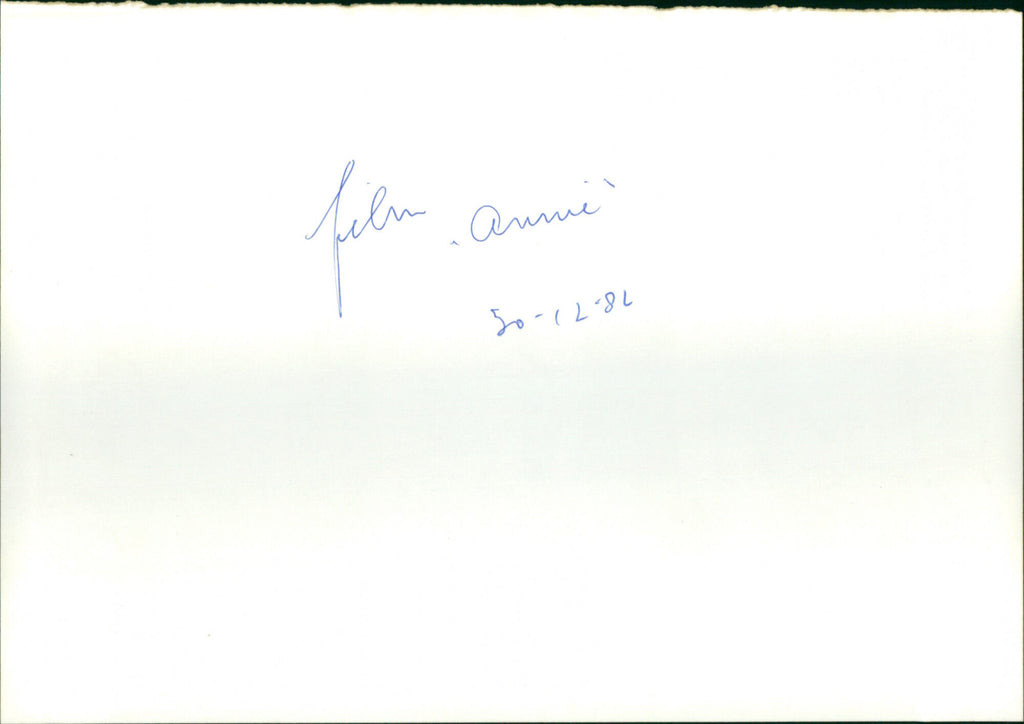 film "Annie"
30-12-82